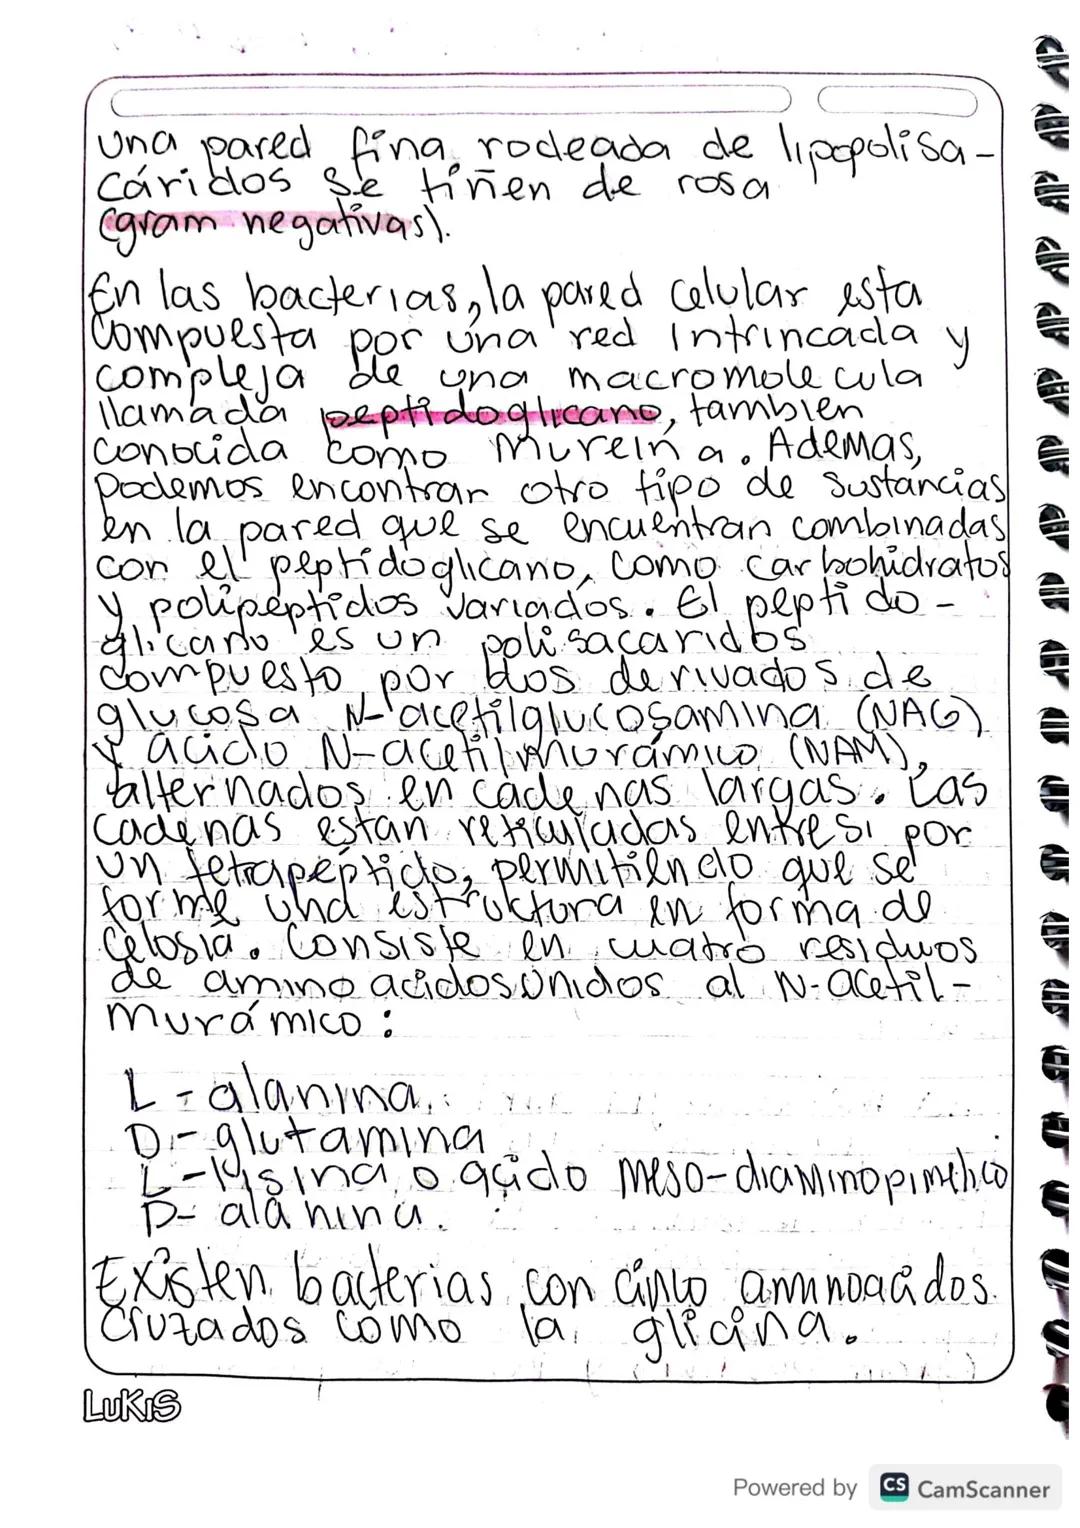 una pared fina rodeada de lipopolisa-
cáridos se tiñen de rosa
(gram negativas).
En las bacterias, la pared celular esta
compuesta por una red intrincada y
compleja de una macromolecula
llamada peptidoglicano, tambien
conocida como mureina. Ademas,
podemos encontrar otro tipo de sustancias
en la pared que se encuentran combinadas
con el peptidoglicano, como carbohidratos
y polipéptidos variados. El peptido-
glicano es un polisacaridos
compuesto por dos derivados de
glucosa N-acetilglucosamina (NAG)
y acido N-acetilmurámico (NAM),
alternados en cadenas largas. Las
cadenas estan reticuladas entresi por
un tetrapéptido, permitiendo que se
forme una estructura en forma de
celosia. Consiste en cuatro residuos
de amino acidos unidos al N-acetil-
murámico:
L-alanina
D-glutamina
L-lisina o acido meso-diaminopimelico
D-alanina.
Existen bacterias con cinco aminoacidos
cruzados como la glicina.
LUKIS
Powered by CS CamScanner